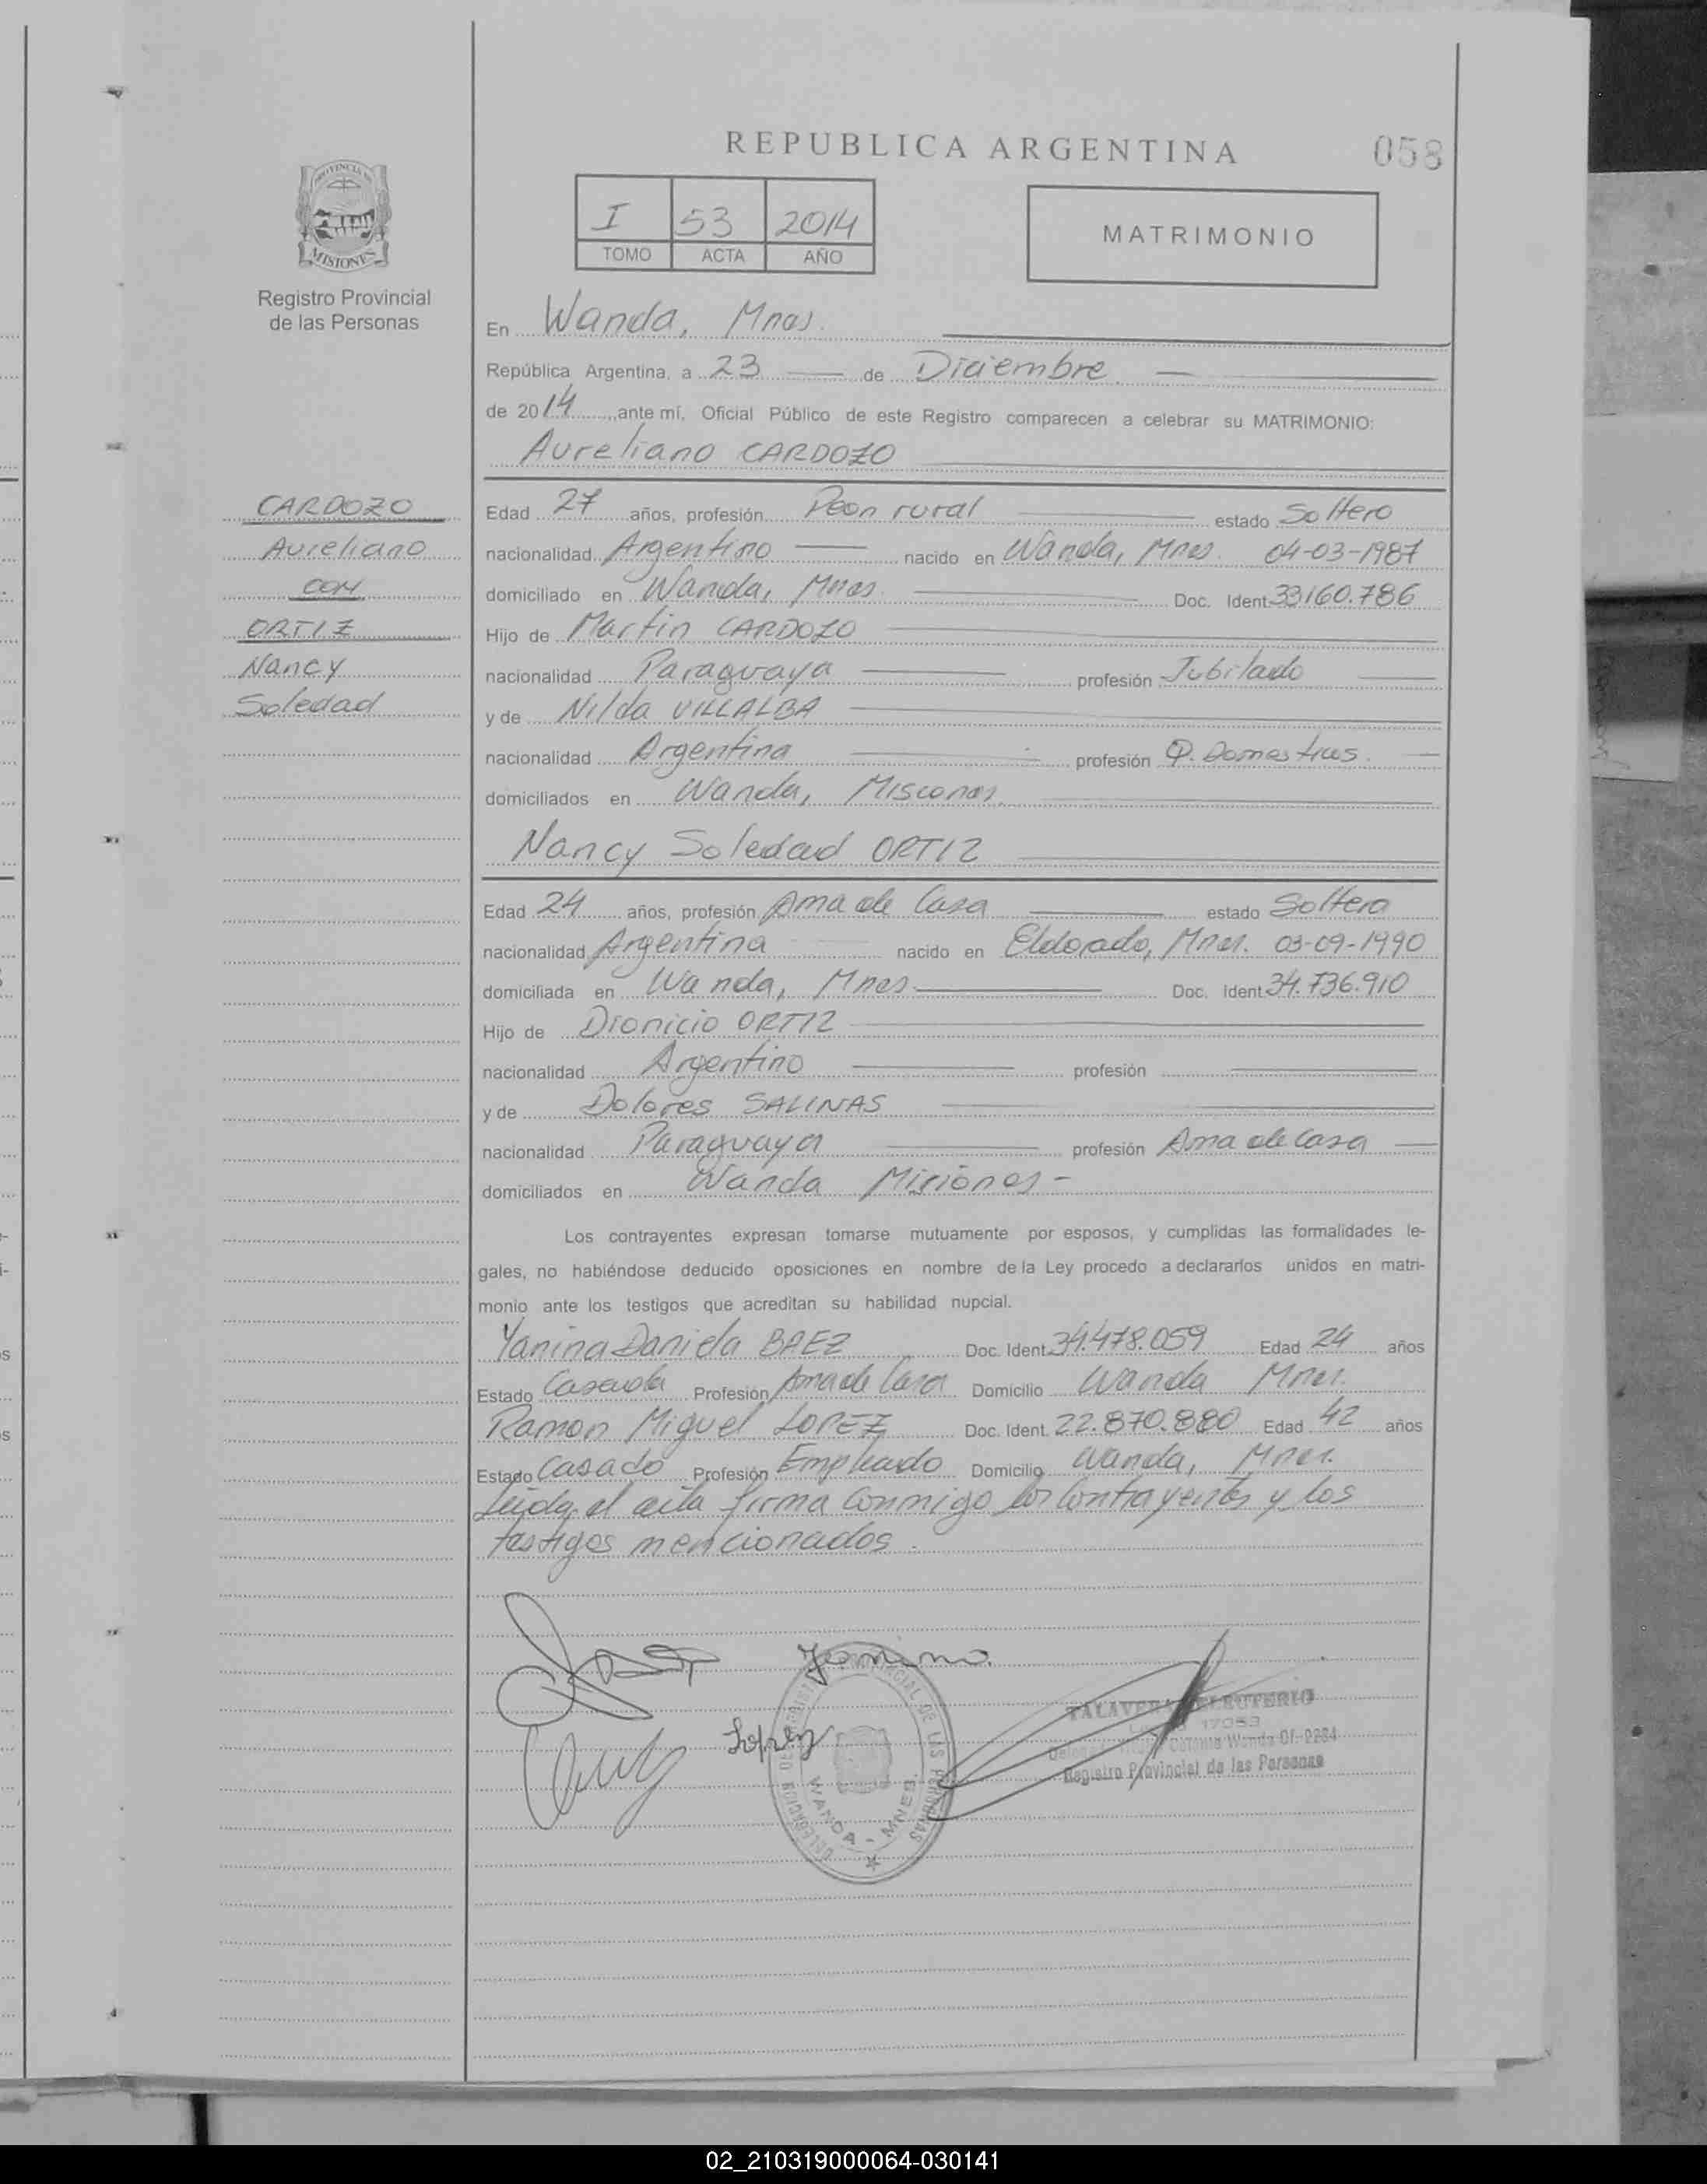 REPUBLICA ARGENTINA
058
PROVINCIA DE
MISIONES
Registro Provincial
de las Personas
I 53 2014
TOMO ACTA AÑO
MATRIMONIO
En Wanda, Mnes.
República Argentina, a 23 de Diciembre
de 2014, ante mí, Oficial Público de este Registro comparecen a celebrar su MATRIMONIO:
Aureliano CARDOZO
CARDOZO
Aureliano
CON
ORTIZ
Nancy
Soledad
Edad 27 años, profesión Peon rural estado Soltero
nacionalidad Argentino nacido en Wanda, Mnes. 04-03-1987
domiciliado en Wanda, Mnes. Doc. Ident. 33160.786
Hijo de Martin CARDOZO
nacionalidad Paraguaya profesión Jubilado
y de Nilda VILLALBA
nacionalidad Argentina profesión Q. Domesticos.
domiciliados en Wanda, Misiones.
Nancy Soledad ORTIZ
Edad 24 años, profesión Ama de Casa estado Soltera
nacionalidad Argentina nacido en Eldorado, Mnes. 03-09-1990
domiciliada en Wanda, Mnes. Doc. Ident. 34.736.910
Hijo de Dionicio ORTIZ
nacionalidad Argentino profesión
y de Dolores SALINAS
nacionalidad Paraguaya profesión Ama de Casa
domiciliados en Wanda Misiones-
Los contrayentes expresan tomarse mutuamente por esposos, y cumplidas las formalidades le-
gales, no habiéndose deducido oposiciones en nombre de la Ley procedo a declararlos unidos en matri-
monio ante los testigos que acreditan su habilidad nupcial.
Yanina Daniela BAEZ Doc. Ident. 34.478.059 Edad 24 años
Estado Casada Profesión Ama de Casa Domicilio Wanda Mnes.
Ramon Miguel LOPEZ Doc. Ident. 22.870.880 Edad 42 años
Estado Casado Profesión Empleado Domicilio Wanda, Mnes.
Leida el acta firma conmigo los contrayentes y los
testigos mencionados.
Lopez
DELEGACION DE REGISTRO PROVINCIAL DE LAS PERSONAS
WANDA - MNES.
TALAVERA ELEUTERIO
17053
Colonia Wanda Of. 2284
Registro Provincial de las Personas
02_210319000064-030141